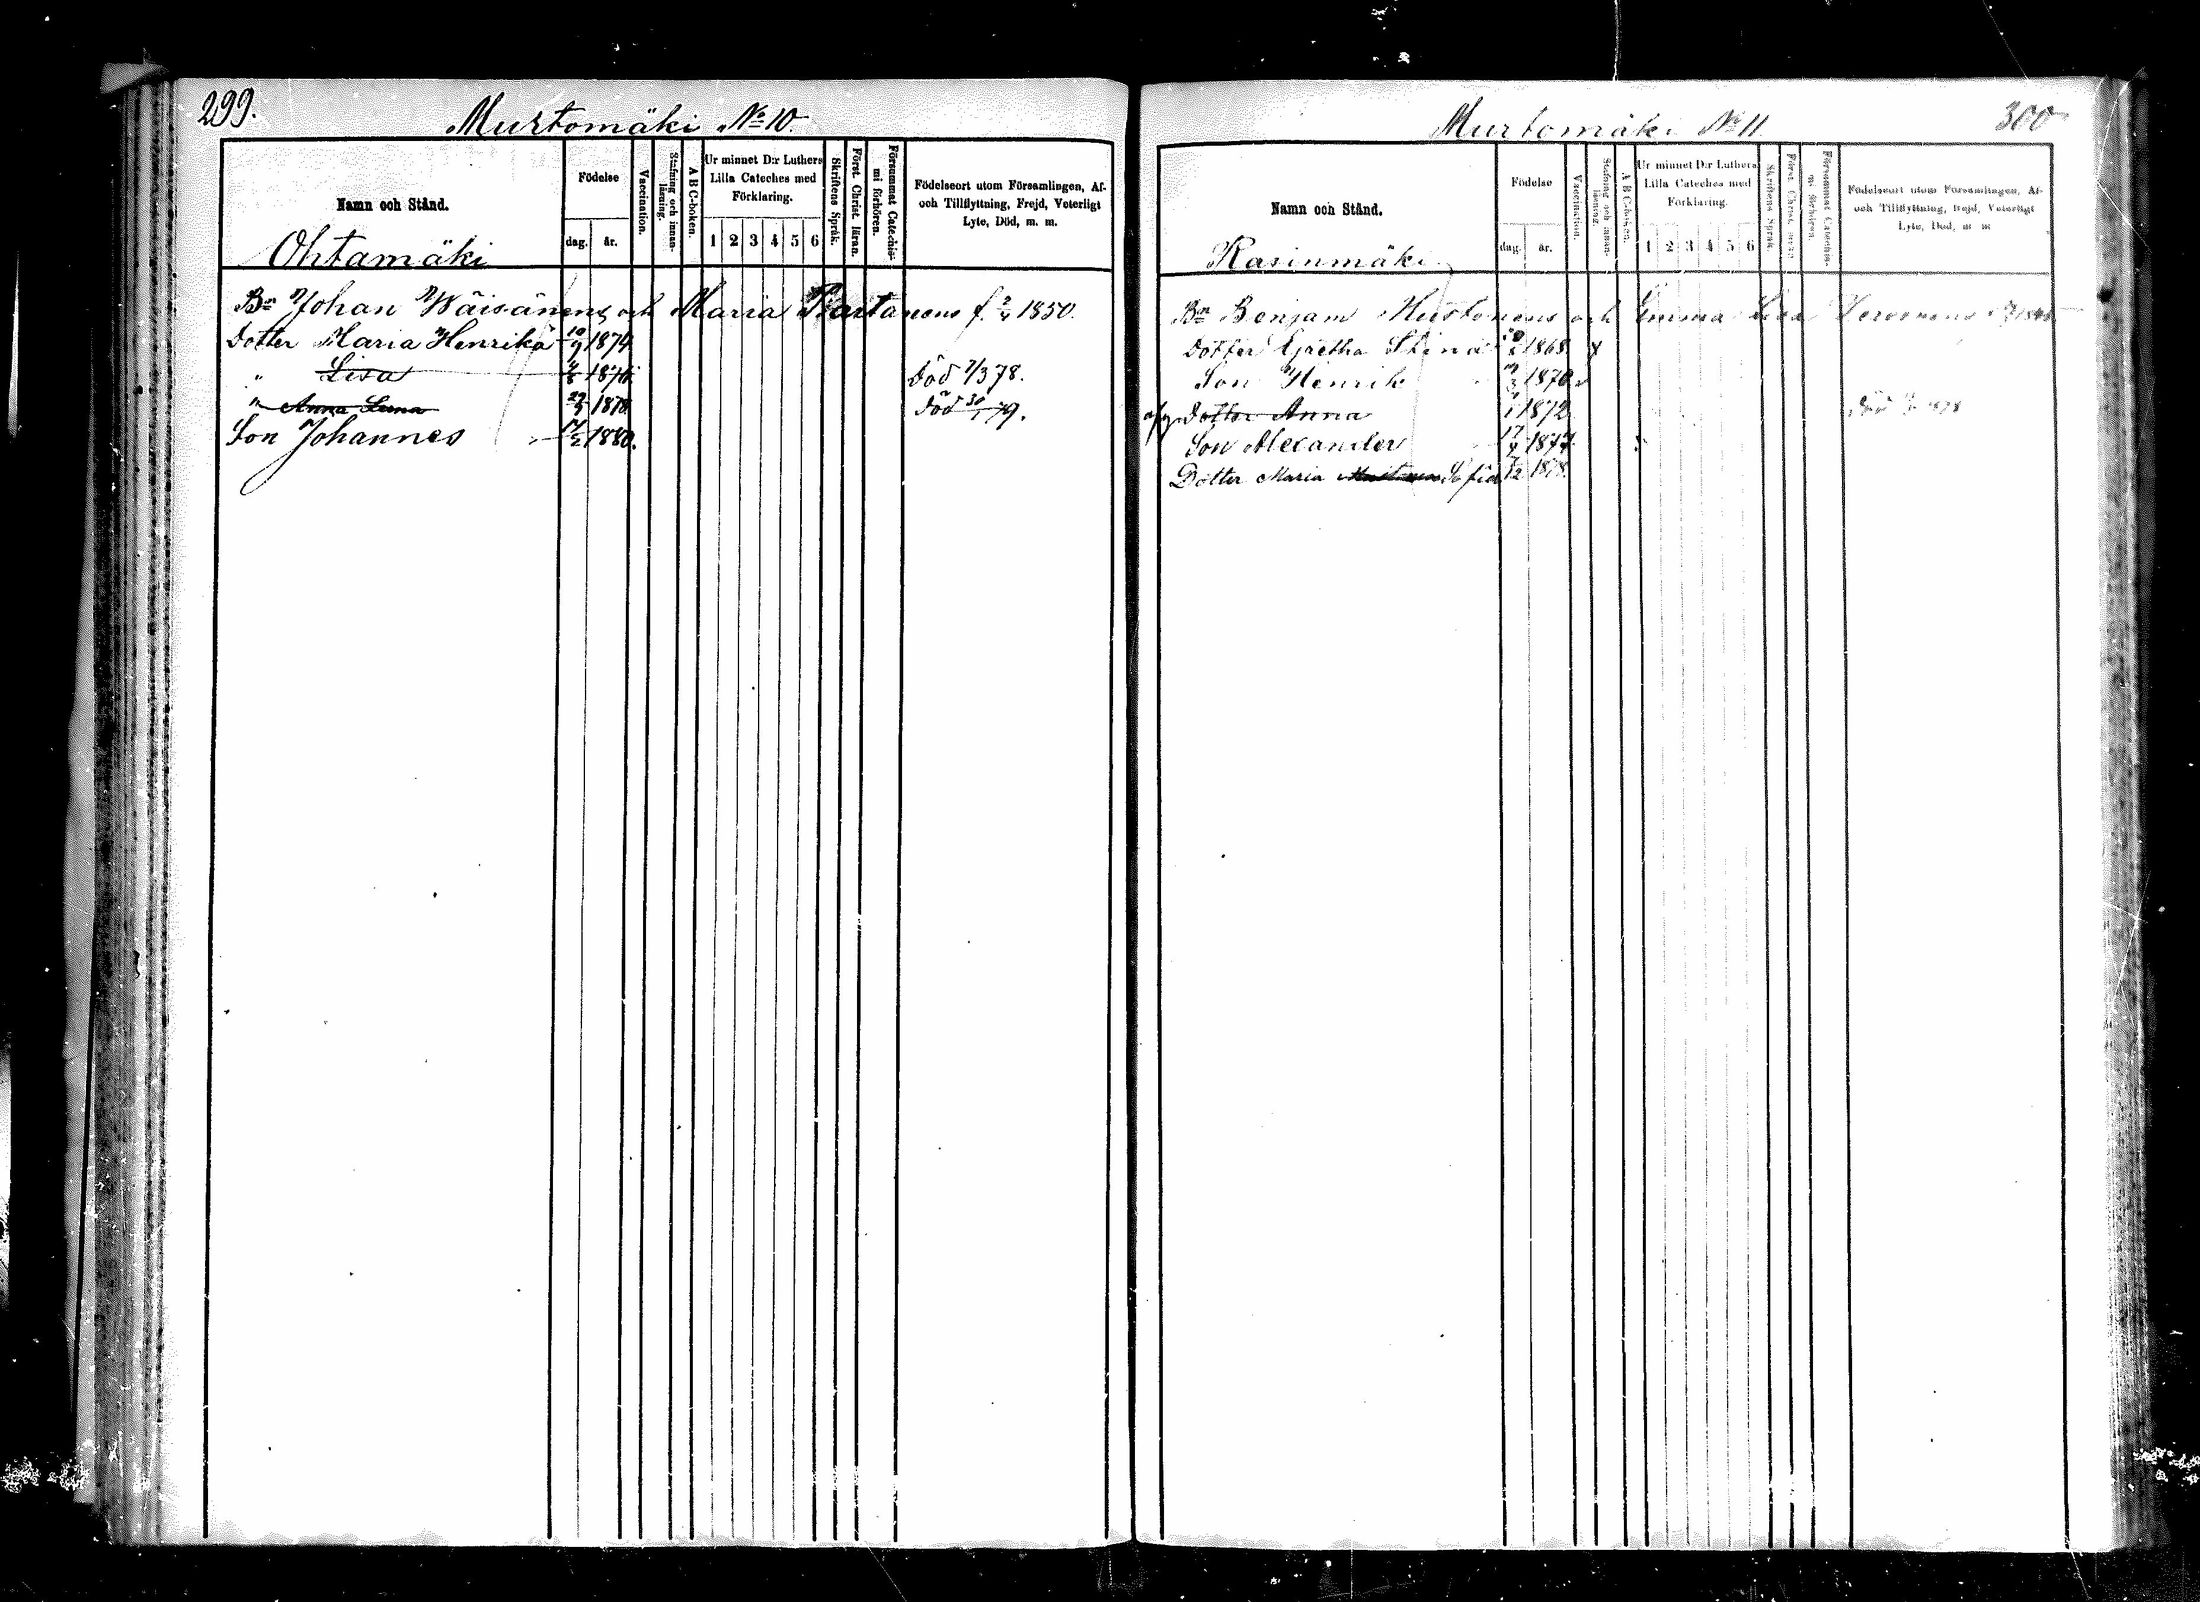 299.
Murtomäki No 10.
Namn och Stånd.
Födelse
dag.
år.
Vaccination.
Stafning och innan-läsning.
A B C-boken.
Ur minnet D:r Luthers
Lilla Cateches med
Förklaring.
1 2 3 4 5 6
Skriftens Språk.
Först. Christ. läran.
Försummat Catechis-mi förhören.
Födelseort utom Församlingen, Af-
och Tillflyttning, Frejd, Veterligt
Lyte, Död, m. m.
Ohtamäki
Bn Johan Wäisänens och Maria Partanens f. 2/4 1850.
Dotter Maria Henrika 10/9 1874
" Lisa 1876 Död 7/3 78.
" Anna Leena 1878 död 30/1 79.
Son Johannes 1880.
Murtomäki No 11
300
Namn och Stånd.
Födelse
dag.
år.
Vaccination.
Stafning och innan-läsning.
A B C-boken.
Ur minnet D:r Luthers
Lilla Cateches med
Förklaring.
1 2 3 4 5 6
Skriftens Språk.
Först. Christ. läran.
Försummat Catechis-mi förhören.
Födelseort utom Församlingen, Af-
och Tillflyttning, Frejd, Veterligt
Lyte, Död, m. m.
Kasinmäki
Bn Benjam Hustonens och Emma Lisa
Dotter Gretha Stina 1868
Son Henrik 1870
Dotter Anna 1872 Död
Son Alexander 17 1877
Dotter Maria Sofia 1878.